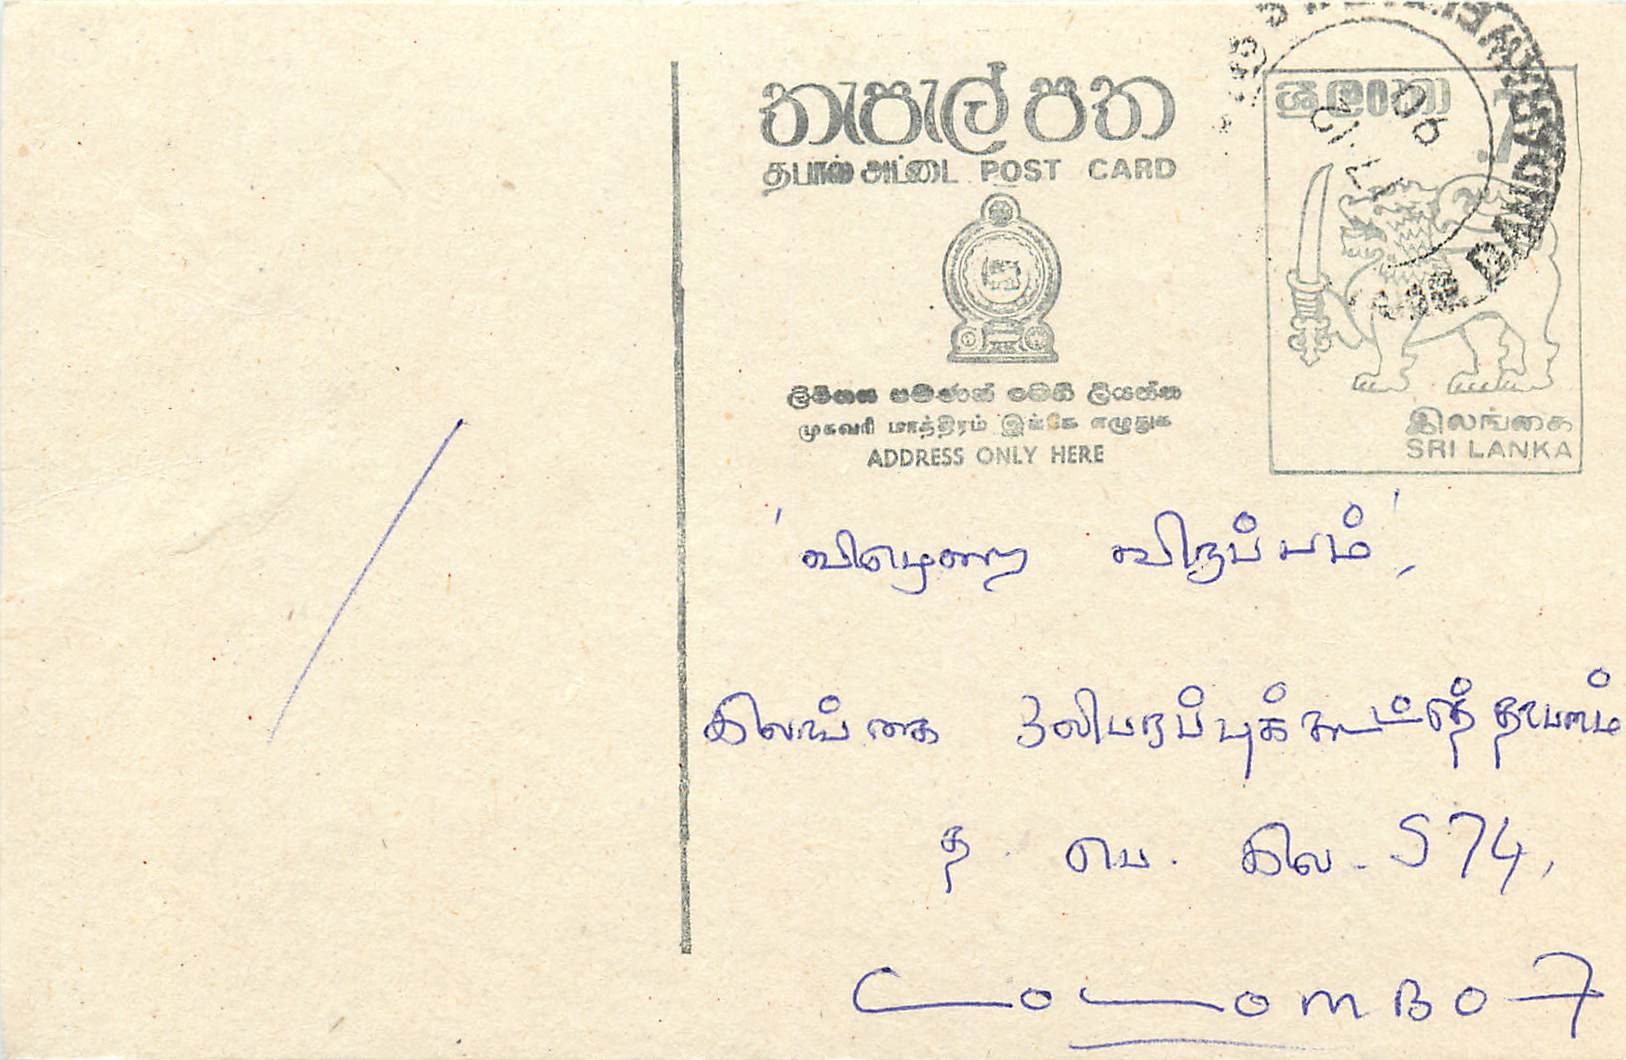 තැපැල් පත
தபால் அட்டை POST CARD
ලිපිනය පමණක් මෙහි ලියන්න
முகவரி மாத்திரம் இங்கே எழுதுக
ADDRESS ONLY HERE
ශ්‍රී ලංකා
இலங்கை
SRI LANKA
17 12
90
விருப்பம்',
இலங்கை ஒலிபரப்புக்கூட்டுத்தாபனம்
த. பெ. இல - 574,
COLOMBO-7